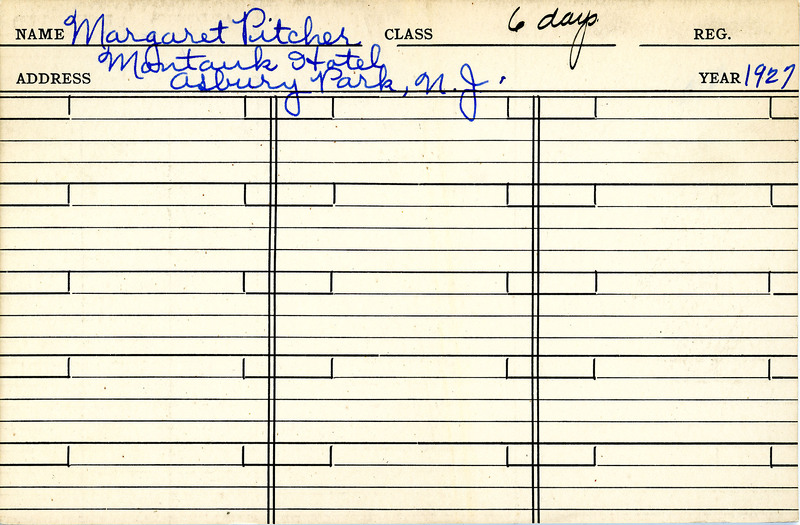 NAME Margaret Pitcher CLASS 6 days REG.
ADDRESS Montauk Hotel
Asbury Park, N.J. YEAR 1927